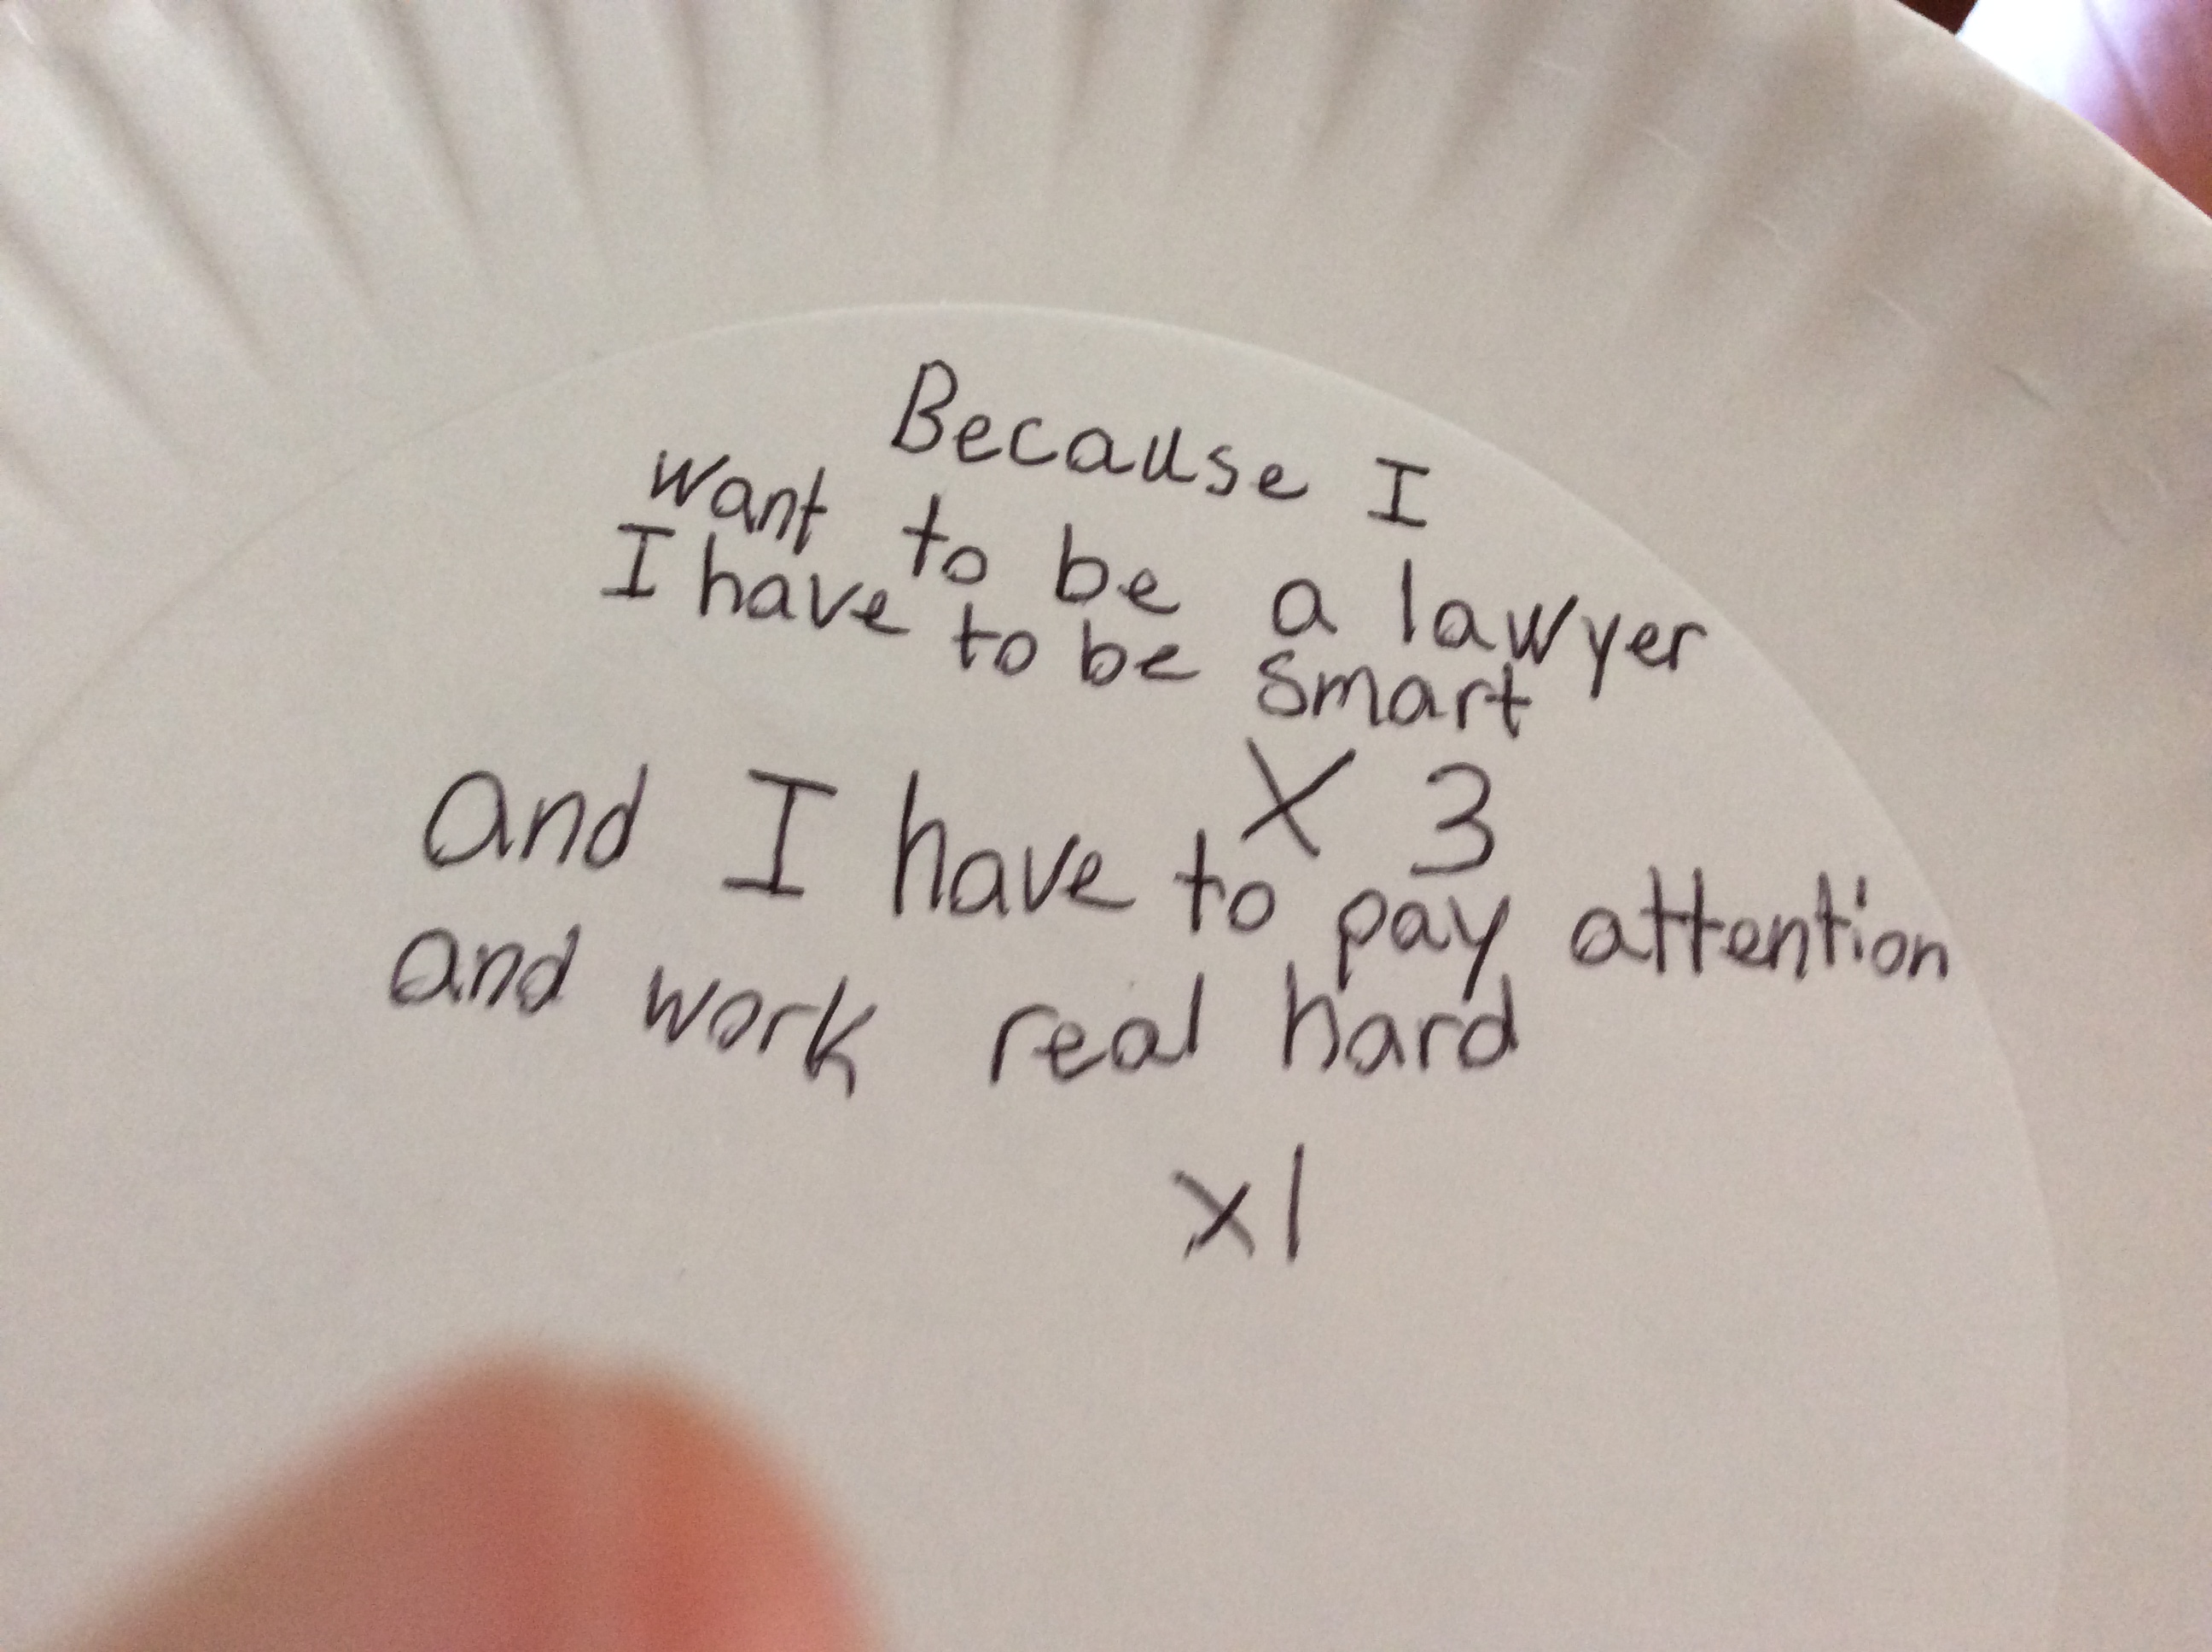 Because I
want to be a lawyer
I have to be smart
X 3
and I have to pay attention
and work real hard
x1